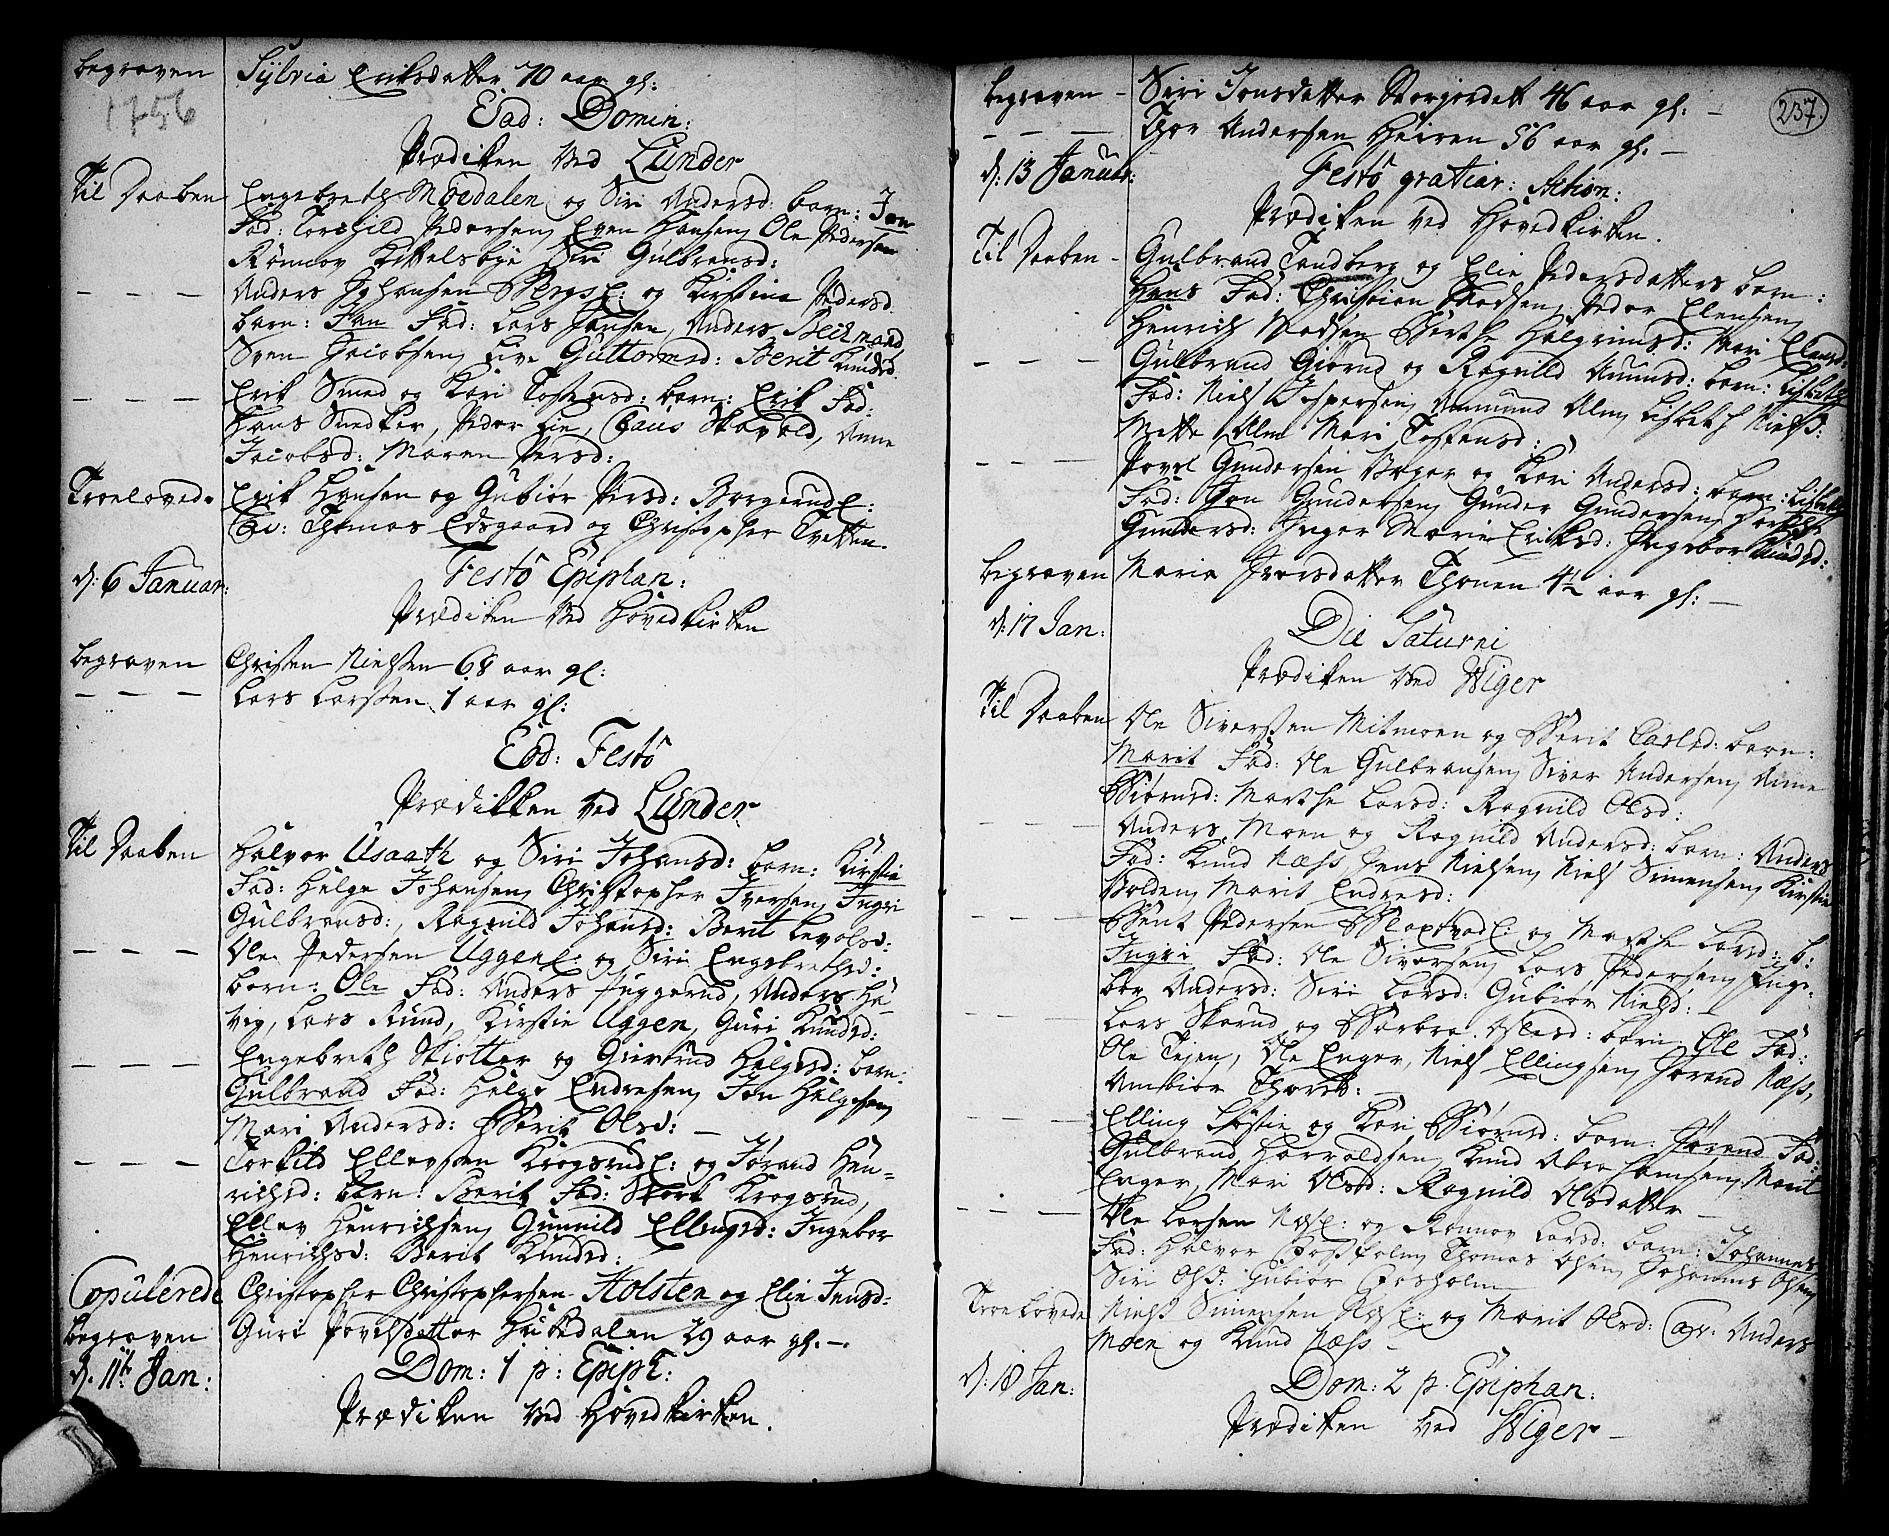 begraven Sÿlvia Eriksdatter 70 aar gl:
1756
Ead: Domin:
Prædiken ved Lunder
Til Daaben Engebreth Moedalen og Siri Andersd: barn: Jon
Fad: Torchild Pedersen, Even Hansen, Ole Pedersen
Rønnov Kittelsbye Siri Gulbrensd:
— — — Anders Johansen Bergs E: og Kirstine Pedersd.
barn: Jan Fad: Lars Jansen, Anders Beckmand
Sven Jacobsen, Live Guttormsd: Berit Knudsd.
— — — Erik Smed og Kari Tostensd: barn: Erik Fad:
Hans Snedker, Peder Lie, Claus Skavold, Anne
Jacobsd: Maren Persd:
Troelovede Erik Hansen og Gubiør Persd: Borgerud E:
Cav: Thomas Edsgaard og Christopher Tvetten.
d: 6 Januar: Festo Epiphan:
Prædiken ved Hovedkirken
begraven Christen Nielsen 68 aar gl:
— — — Lars Larssen 1 aar gl:
Eod: Festo
Prædikken ved Lunder
Til Daaben Halvor Usaath og Siri Johansd: barn: Kirstie
Fad: Helge Johansen, Christopher Iversen, Ingri
Gulbrensd:, Ragnild Johansd: Berit Levolsd:
— — — Ole Pedersen Uggen E: og Siri Engebrethsd:
barn: Ole Fad: Anders Juggerud, Anders He-
vig, Lars Rund, Kirstie Uggen, Guri Knudsd:
— — — Engebreth Skiøtter og Giertrud Helgesd: barn:
Gulbrand Fad: Helge Endresen, Jon Helgesen,
Mari Andersd: Berit Olsd: —
— — — Torkild Ellevsen Krogsrud E: og Jørand Hen-
richsd: barn: Berit Fad: Krogsrud,
Ellev Henrichsen, Gunnild Ellingsd: Ingebor
Henrichsd: Berit Knudsd:
Copulerede Christopher Christophersen Holsten og Elie Jensd-
begraven Guri Povelsdatter Hukedalen 29 aar gl. —
d. 11te Jan: Dom: 1 p: Epiph:
Prædiken ved Hovedkirken.
237.
begraven — Siri Jonsdatter Storjordet 46 aar gl: —
— — — Thor Andersen Heiren 56 aar gl. —
d: 13 Januar: Festo gratiar: Action:
Prædiken ved Hovedkirken.
Til Daaben — Gulbrand Tandberg og Elie Pedersdatters barn:
Hans Fad: Christien Madsen, Peder Elensen,
Henrich Madsen Berthe Halgrimsd: Mari Elensd:
— — — Gulbrand Giørud og Ragnild Amunsd: barn: Lisbeth
Fad: Niels Jespersen, Amund Alm, Lisbeth Nielsd:
Mette Alm Mari Tostensd:
— — — Povel Gundersen Bager og Kari Andersd: barn: Lisbeth
Fad: Jon Gundersen, Gunder Gundersen,
Gundersd: Inger Marie Eriksd: Ingebor Knudsd:
begraven Marie Iversdatter Thonen 4½ aar gl: —
d: 17 Jan: Die Saturni
Prædiken ved Wiger
Til Daaben Ole Siversen Mitmoen og Berit Carlsd: barn:
Marit Fad: Ole Gulbransen, Siver Andersen, Anne
Biørnsd: Marthe Larsd: Ragnild Olsd:
— — — Anders Moen og Ragnild Andersd: barn: Anders
Fad: Knud Næss, Jens Nielsen, Niels Simensen, Kirstie
Volden, Marit Endresd:
— — — Bent Pedersen E: og Marthe Larsd: b:
Ingri Fad: Ole Siversen, Lars Pedersen, Inge-
bor Andersd: Siri Larsd: Gubiør Nielsd: —
— — — Lars Skarud og Barbra Olsd: barn Ole Fad:
Ole Tejen, Ole Enger, Niels Ellingsen, Jørend Næss,
Ambiør Thorsd: —
— — — Elling Løstie og Kari Biørnsd: barn: Jørend Fad:
Gulbrand Harroldsen, Knud Abrahamsen, Marit
Enger, Mari Olsd: Ragnild Olsdatter —
— — — Ole Larsen Næs E: og Rønnov Larsd: barn: Johannes
Fad: Halvor Thomas Olsen, Johannes Olsen,
Siri Olsd: Gubiør
Troelovede Niels Simensen Næs E: og Marit Olsd: Cav: Anders
Moen og Knud Næss —
d: 18 Jan: Dom: 2 p. Epiphan:
Prædiken ved Wiger —